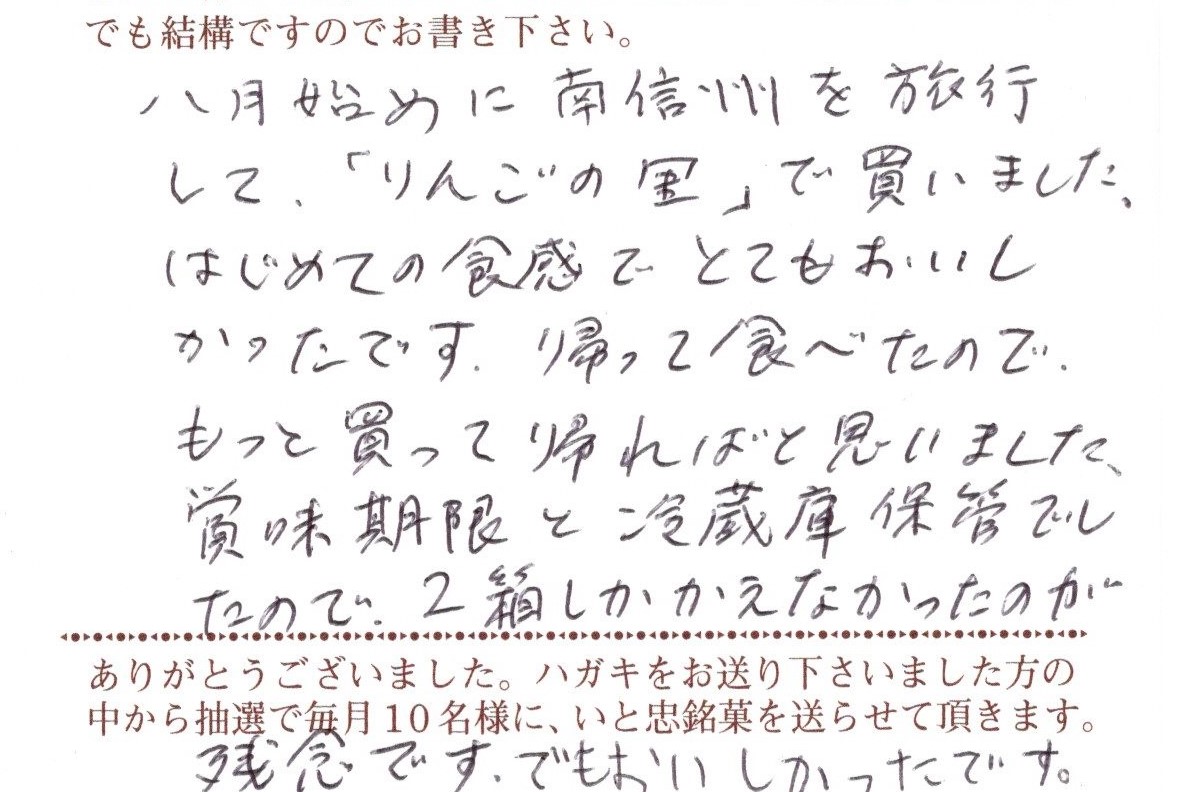 でも結構ですのでお書き下さい。
八月始めに南信州を旅行
して、「りんごの里」で買いました、
はじめての食感でとてもおいし
かったです。帰って食べたので、
もっと買って帰ればと思いました、
賞味期限と冷蔵庫保管でし
たので、2箱しかかえなかったのが
ありがとうございました。ハガキをお送り下さいました方の
中から抽選で毎月10名様に、いと忠銘菓を送らせて頂きます。
残念です、でもおいしかったです。